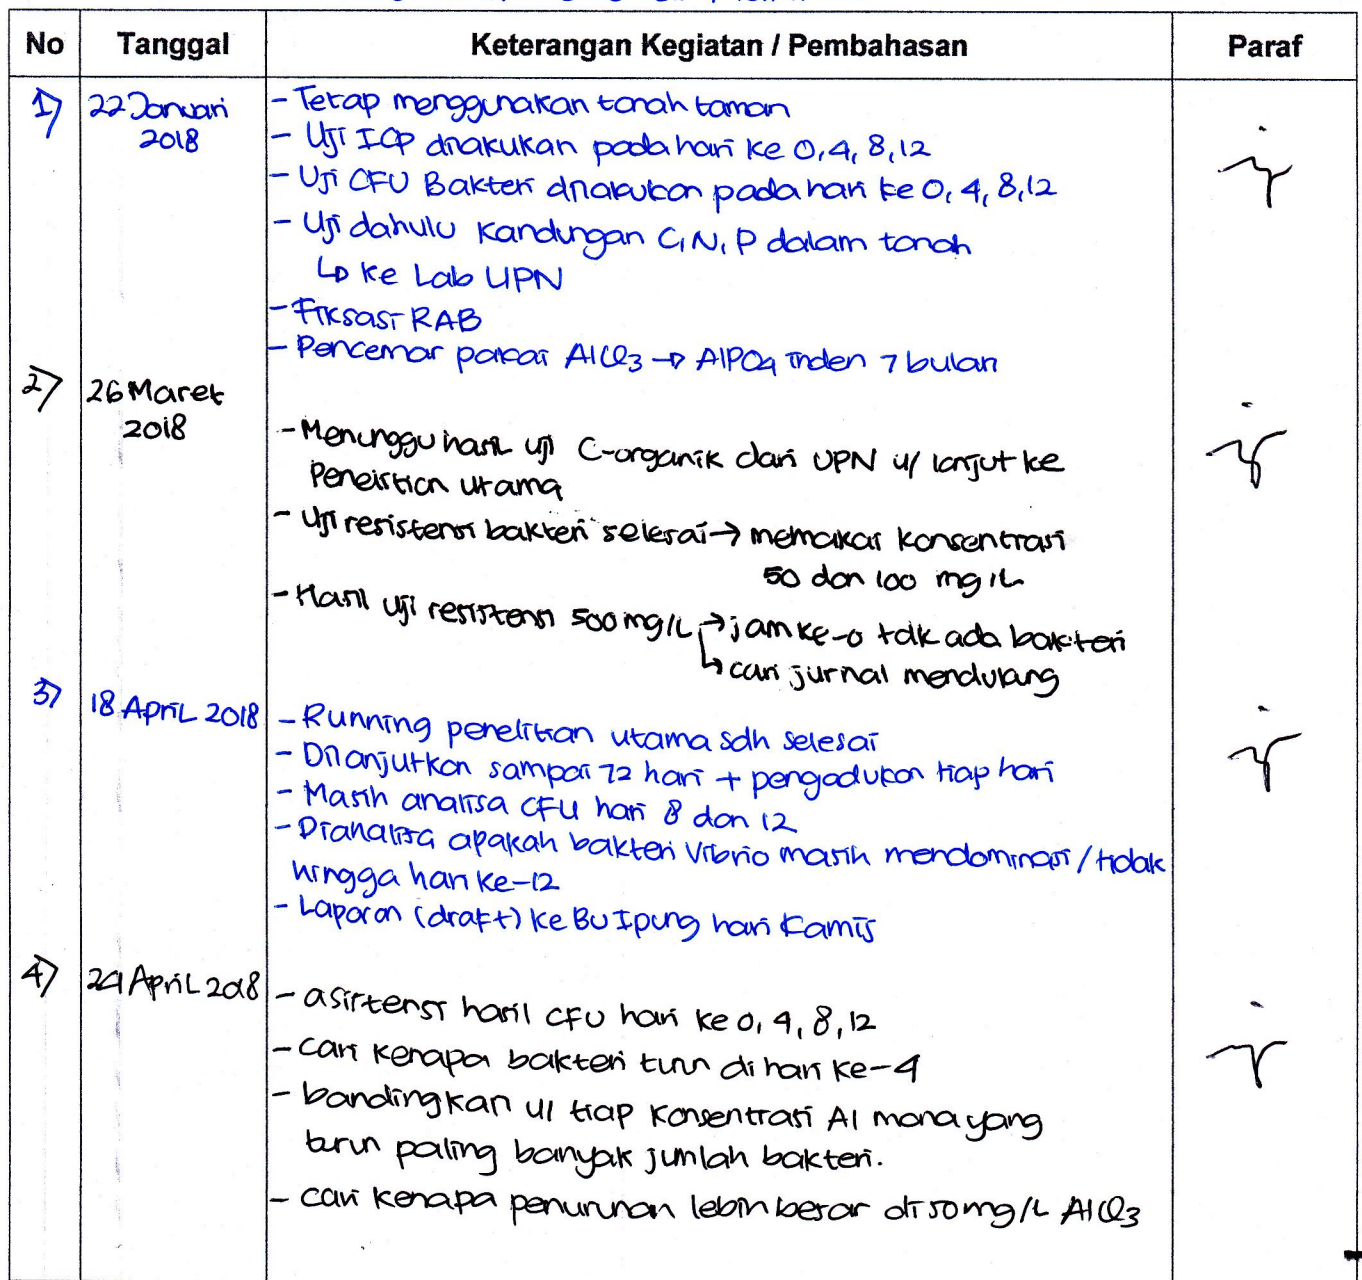 No Tanggal Keterangan Kegiatan / Pembahasan Paraf
1) 22 Januari 2018
- Tetap menggunakan tanah taman
- Uji ICP dilakukan pada hari ke 0, 4, 8, 12
- Uji CFU Bakteri dilakukan pada hari ke 0, 4, 8, 12
- Uji dahulu kandungan C, N, P dalam tanah
↳ ke Lab UPN
- Fiksasi RAB
- Pencemar pakai AlCl3 → AlPO4 inden 7 bulan
2) 26 Maret 2018
- Menunggu hasil uji C-organik dari UPN u/ lanjut ke
Penelitian utama
- Uji resistensi bakteri selesai → memakai konsentrasi
50 dan 100 mg/L
- Hasil uji resistensi 500 mg/L → jam ke-0 tdk ada bakteri
↳ cari jurnal mendukung
3) 18 April 2018
- Running penelitian utama sdh selesai
- Dilanjutkan sampai 72 hari + pengadukan tiap hari
- Masih analisa CFU hari 8 dan 12
- Dianalisa apakah bakteri Vibrio masih mendominasi / tidak
hingga hari ke-12
- Laporan (draft) ke Bu Ipung hari Kamis
4) 24 April 2018
- asistensi hasil CFU hari ke 0, 4, 8, 12
- cari kenapa bakteri turun di hari ke-4
- bandingkan u/ tiap konsentrasi Al mana yang
turun paling banyak jumlah bakteri.
- cari kenapa penurunan lebih besar di 50 mg/L AlCl3